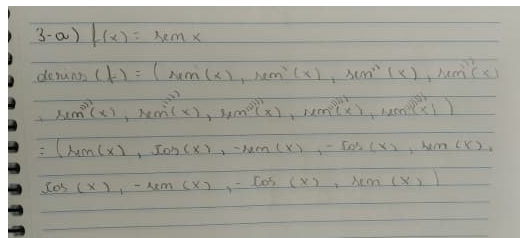 3-a) f(x) = sen x
derivs (f) = (sen(x), sen'(x), sen''(x), sen'''(x)
, sen''''(x), sen'''''(x), sen''''''(x), sen'''''''(x), sen''''''''(x))
= (sen(x), cos(x), -sen(x), -cos(x), sen(x),
cos(x), -sen(x), -cos(x), sen(x))